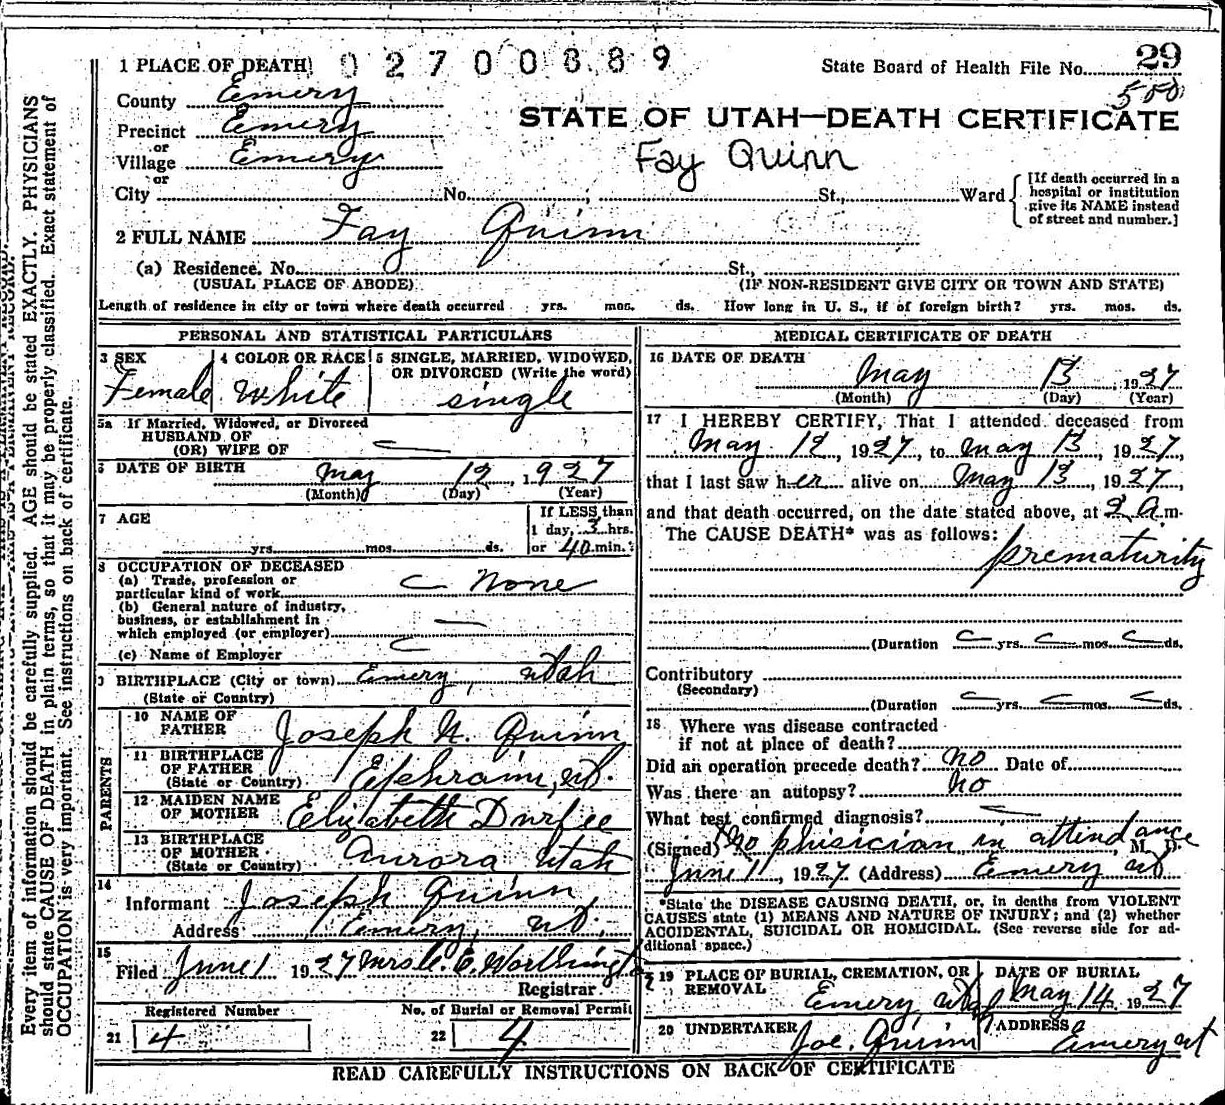 1 PLACE OF DEATH 02700889
State Board of Health File No. 29
500
County Emery
STATE OF UTAH—DEATH CERTIFICATE
Precinct Emery
or
Fay Quinn
Village Emery
or
City No. , St., Ward
[If death occurred in a hospital or institution give its NAME instead of street and number.]
2 FULL NAME Fay Quinn
(a) Residence. No. St.,
(USUAL PLACE OF ABODE) (IF NON-RESIDENT GIVE CITY OR TOWN AND STATE)
Length of residence in city or town where death occurred yrs. mos. ds. How long in U. S., if of foreign birth? yrs. mos. ds.
PERSONAL AND STATISTICAL PARTICULARS
3 SEX
Female
4 COLOR OR RACE
White
5 SINGLE, MARRIED, WIDOWED,
OR DIVORCED (Write the word)
single
5a If Married, Widowed, or Divorced
HUSBAND OF
(OR) WIFE OF
6 DATE OF BIRTH May 12, 1927
(Month) (Day) (Year)
7 AGE
yrs. mos. ds.
If LESS than
1 day, 3 hrs.
or 40 min.
8 OCCUPATION OF DECEASED
(a) Trade, profession or
particular kind of work None
(b) General nature of industry,
business, or establishment in
which employed (or employer)
(c) Name of Employer
9 BIRTHPLACE (City or town) Emery, Utah
(State or Country)
PARENTS
10 NAME OF
FATHER Joseph N. Quinn
11 BIRTHPLACE
OF FATHER
(State or Country) Ephraim, ut.
12 MAIDEN NAME
OF MOTHER Elizabeth Durfee
13 BIRTHPLACE
OF MOTHER
(State or Country) Aurora Utah
14
Informant Joseph Quinn
Address Emery, ut.
15
Filed June 1 1927 Mrs. C. E. Worthington
Registrar
Registered Number No. of Burial or Removal Permit
21 4 22 4
MEDICAL CERTIFICATE OF DEATH
16 DATE OF DEATH
May 13, 1927
(Month) (Day) (Year)
17 I HEREBY CERTIFY, That I attended deceased from
May 12, 1927, to May 13, 1927,
that I last saw her alive on May 13, 1927,
and that death occurred, on the date stated above, at 2 A.m.
The CAUSE DEATH* was as follows:
prematurity
(Duration yrs. mos. ds.
Contributory
(Secondary)
(Duration yrs. mos. ds.
18 Where was disease contracted
if not at place of death?
Did an operation precede death? no Date of
Was there an autopsy? No
What test confirmed diagnosis?
(Signed) No phisician in attendance, M. D.
June 1, 1927 (Address) Emery ut
*State the DISEASE CAUSING DEATH, or, in deaths from VIOLENT
CAUSES state (1) MEANS AND NATURE OF INJURY; and (2) whether
ACCIDENTAL, SUICIDAL OR HOMICIDAL. (See reverse side for ad-
ditional space.)
19 PLACE OF BURIAL, CREMATION, OR
REMOVAL
Emery, Utah
DATE OF BURIAL
May 14 1927
20 UNDERTAKER
Joe. Quinn
ADDRESS
Emery ut
READ CAREFULLY INSTRUCTIONS ON BACK OF CERTIFICATE
Every item of information should be carefully supplied. AGE should be stated EXACTLY. PHYSICIANS
should state CAUSE OF DEATH in plain terms, so that it may be properly classified. Exact statement of
OCCUPATION is very important. See instructions on back of certificate.